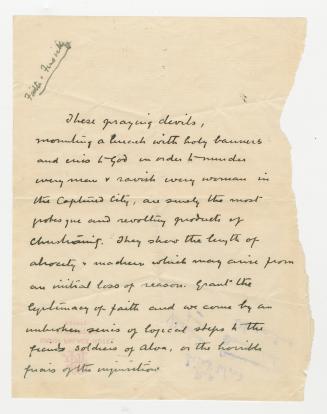 These praying devils,
mounting a breach with holy banners
and cries to God in order to murder
every man & ravish every woman in
the Captured City, are surely the most
grotesque and revolting products of
Christianity. They show the length of
atrocity & madness which may arise from
an initial loss of reason. Grant the
legitimacy of faith and we come by an
unbroken series of logical steps to the
fiends soldiers of Alva, or the horrible
friars of the inquisition